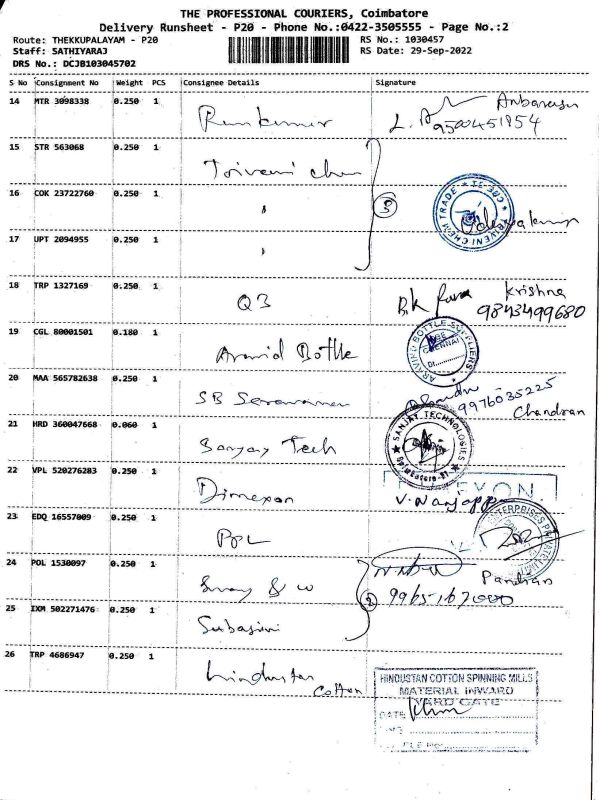 THE PROFESSIONAL COURIERS, Coimbatore
Delivery Runsheet - P20 - Phone No.:0422-3505555 - Page No.:2
Route: THEKKUPALAYAM - P20 RS No.: 1030457
Staff: SATHIYARAJ RS Date: 29-Sep-2022
DRS No.: DCJB103045702
S No Consignment No Weight PCS Consignee Details Signature
14 MTR 3098338 0.250 1 Ramkumar Anbarasu
9500451954
15 STR 563068 0.250 1 Triveni chem
16 COK 23722760 0.250 1 " 3
17 UPT 2094955 0.250 1 "
18 TRP 1327169 0.250 1 Q3 Krishna
9843499680
19 CGL 80001501 0.180 1 Aravid Bottle ARAVIND BOTTLE SUPPLIERS
20 MAA 565782638 0.250 1 SB Seravanan 9976035225
Chandran
21 HRD 360047668 0.060 1 Sanjay Tech SANJAY TECHNOLOGIES
22 VPL 520276283 0.250 1 Dimexon V. Nanjappa
23 EDQ 16557009 0.250 1 PPL
24 POL 1530097 0.250 1 Pandian
2 9965167000
25 IXM 502271476 0.250 1
26 TRP 4686947 0.250 1 hindustan
Cotton
HINDUSTAN COTTON SPINNING MILLS
MATERIAL INWARD
YARD GATE
DATE